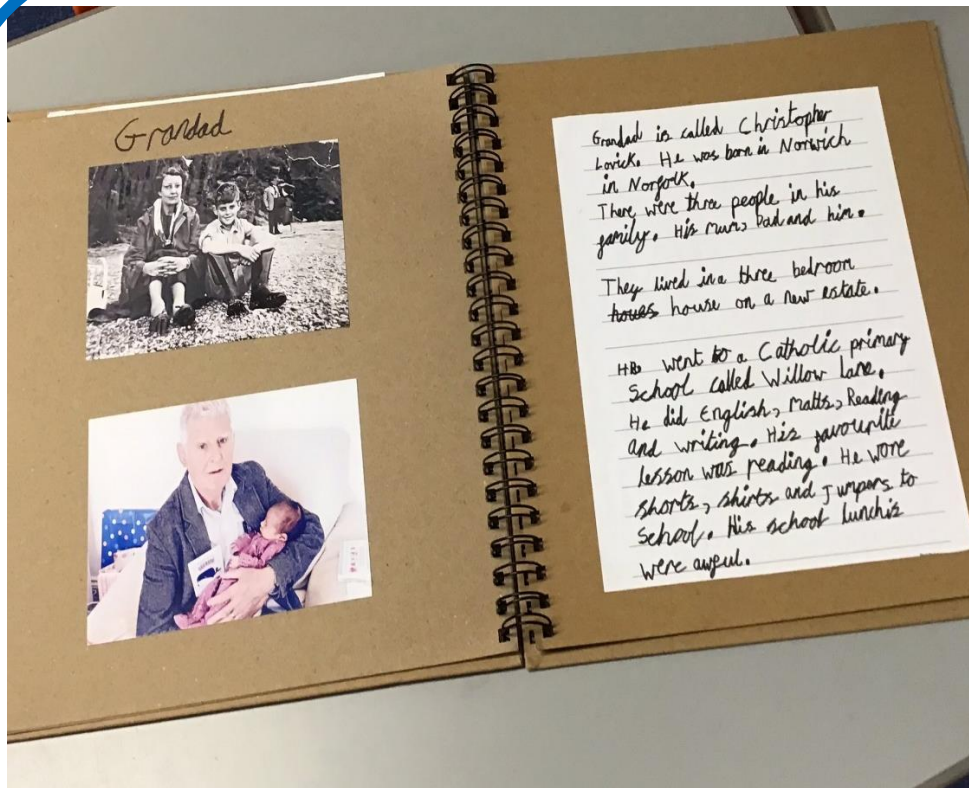 Grandad
Grandad is called Christopher
Lovick. He was born in Norwich
in Norfolk.
There were three people in his
family. His mum, Dad and him.
They lived in a three bedroom
houes house on a new estate.
He went to a Catholic primary
School called Willow lane.
He did English, Maths, Reading
and writing. His favourite
lesson was reading. He wore
shorts, shirts and Jumpers to
School. His school lunchis
were awful.